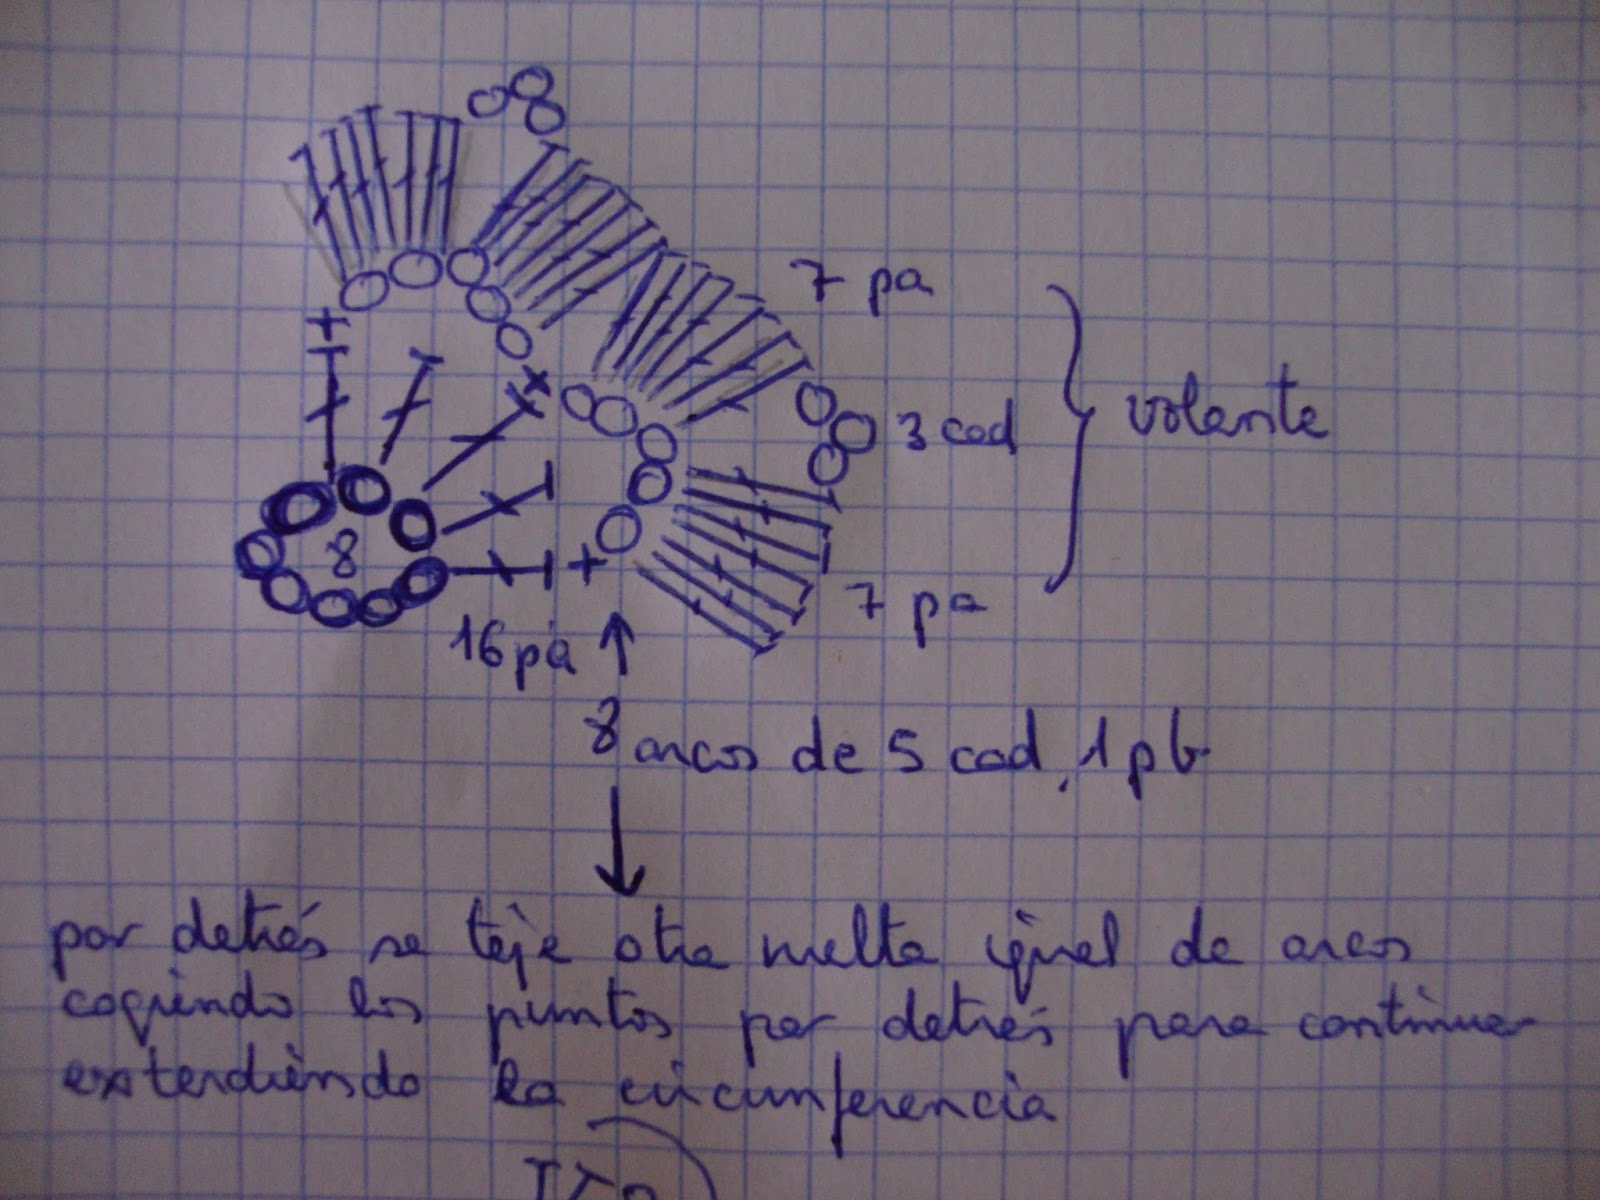 7 pa
3 cad
volante
8
7 pa
16 pa
8 arcos de 5 cad, 1 pb
por detrás se teje otra vuelta igual de arcos
cogiendo los puntos por detrás para continuar
extendiendo la circunferencia